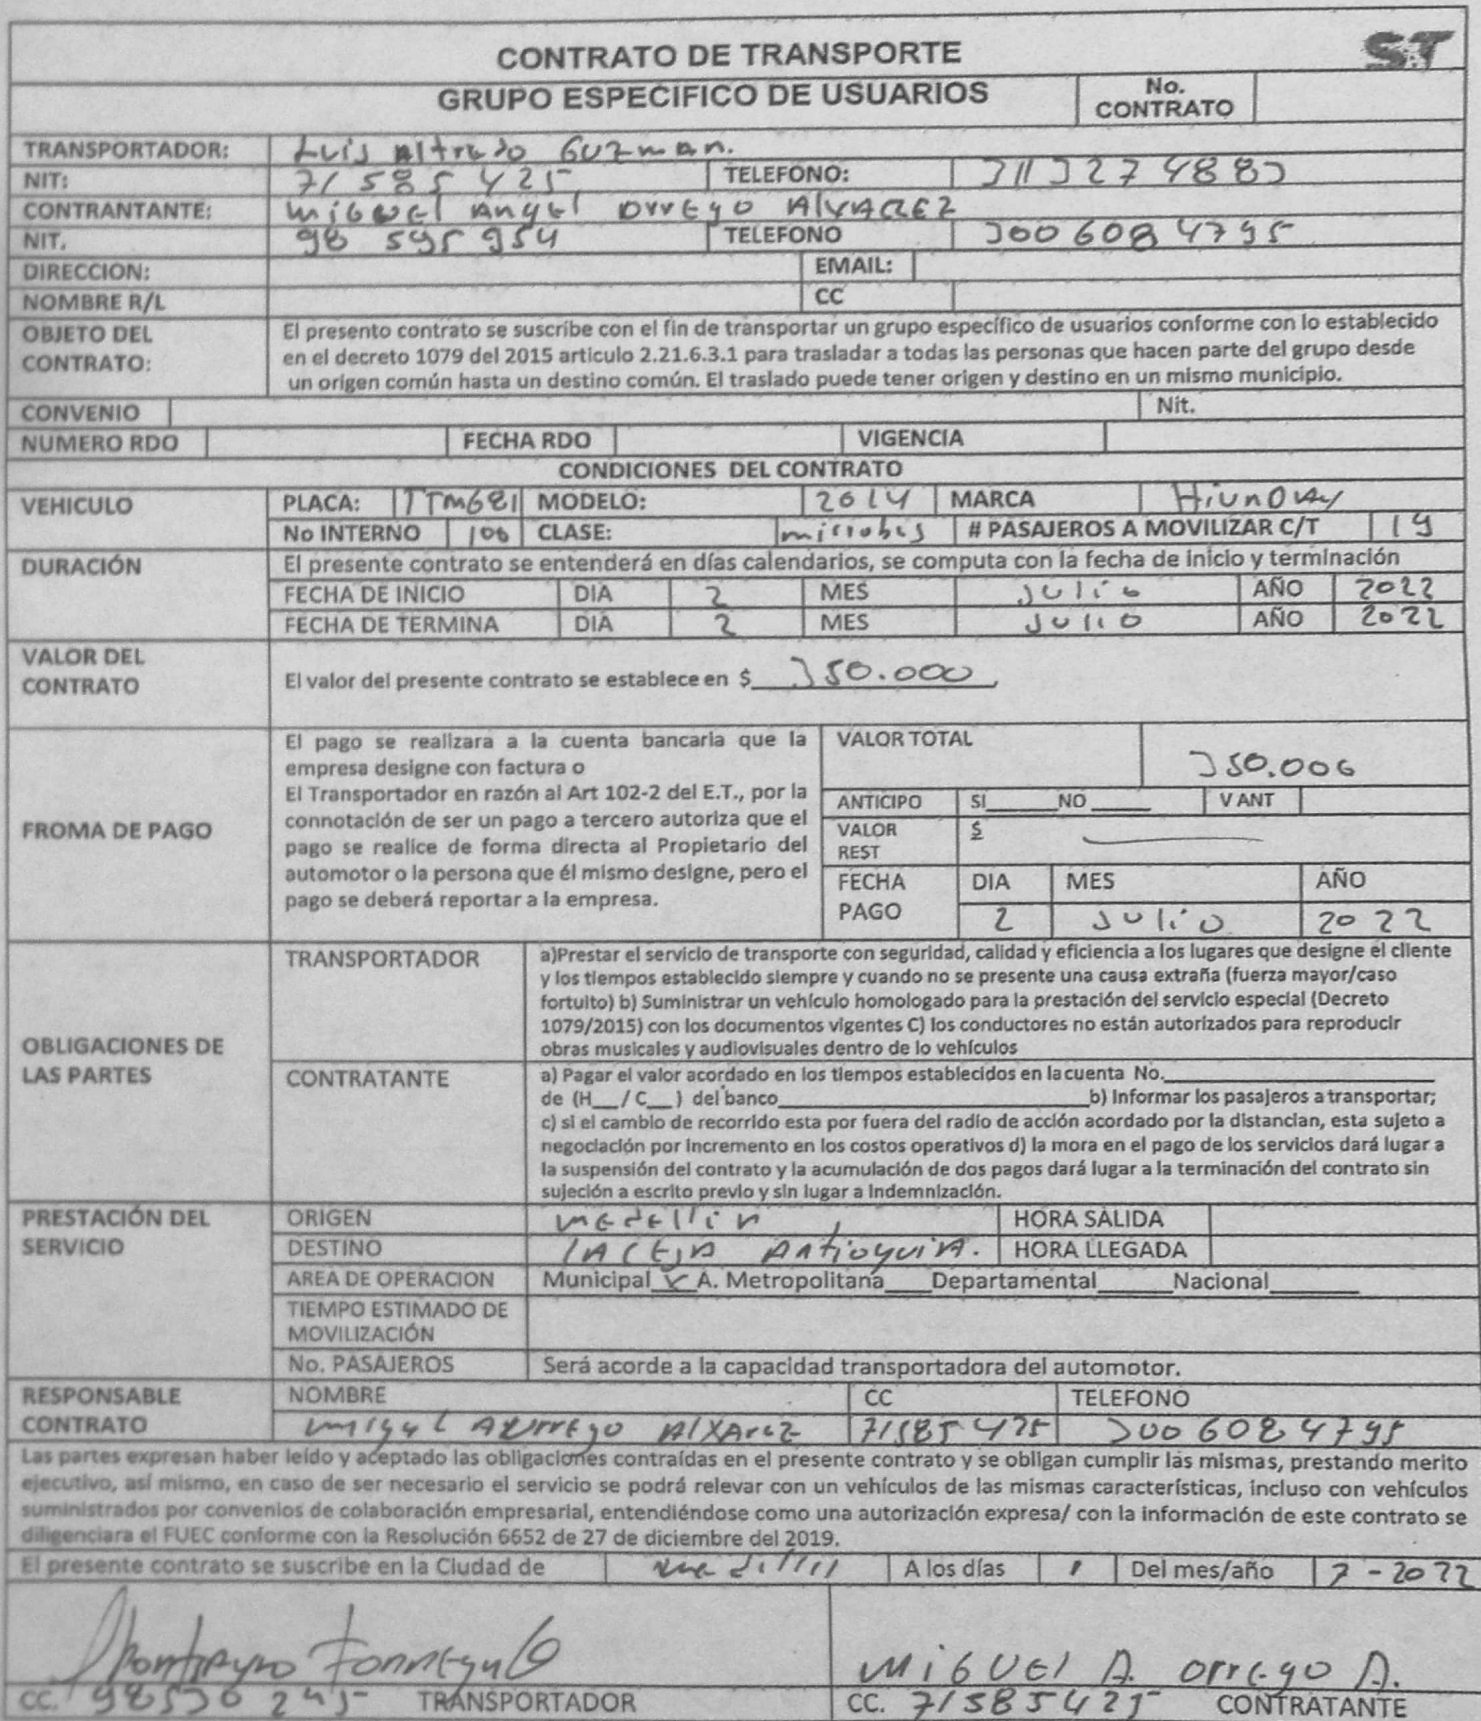 CONTRATO DE TRANSPORTE
ST
GRUPO ESPECIFICO DE USUARIOS
No. CONTRATO
TRANSPORTADOR: Luis Alfredo Guzman.
NIT: 71 585 425 TELEFONO: 3113274883
CONTRANTANTE: Miguel Angel Orrego Alvarez
NIT. 98 595 954 TELEFONO 3006084795
DIRECCION: EMAIL:
NOMBRE R/L CC
OBJETO DEL CONTRATO:
El presento contrato se suscribe con el fin de transportar un grupo específico de usuarios conforme con lo establecido
en el decreto 1079 del 2015 articulo 2.21.6.3.1 para trasladar a todas las personas que hacen parte del grupo desde
un origen común hasta un destino común. El traslado puede tener origen y destino en un mismo municipio.
CONVENIO Nit.
NUMERO RDO FECHA RDO VIGENCIA
CONDICIONES DEL CONTRATO
VEHICULO PLACA: TTM681 MODELO: 2014 MARCA HiunDay
No INTERNO 106 CLASE: microbus # PASAJEROS A MOVILIZAR C/T 19
DURACIÓN El presente contrato se entenderá en días calendarios, se computa con la fecha de inicio y terminación
FECHA DE INICIO DIA 2 MES Julio AÑO 2022
FECHA DE TERMINA DIA 2 MES Julio AÑO 2022
VALOR DEL CONTRATO
El valor del presente contrato se establece en $ 350.000
FROMA DE PAGO
El pago se realizara a la cuenta bancaria que la
empresa designe con factura o
El Transportador en razón al Art 102-2 del E.T., por la
connotación de ser un pago a tercero autoriza que el
pago se realice de forma directa al Propietario del
automotor o la persona que él mismo designe, pero el
pago se deberá reportar a la empresa.
VALOR TOTAL 350.000
ANTICIPO SI____ NO ____ V ANT
VALOR REST $
FECHA PAGO DIA MES AÑO
2 Julio 2022
OBLIGACIONES DE LAS PARTES
TRANSPORTADOR
a)Prestar el servicio de transporte con seguridad, calidad y eficiencia a los lugares que designe el cliente
y los tiempos establecido siempre y cuando no se presente una causa extraña (fuerza mayor/caso
fortuito) b) Suministrar un vehículo homologado para la prestación del servicio especial (Decreto
1079/2015) con los documentos vigentes C) los conductores no están autorizados para reproducir
obras musicales y audiovisuales dentro de lo vehículos
CONTRATANTE
a) Pagar el valor acordado en los tiempos establecidos en la cuenta No.____
de (H__/ C__) del banco____b) Informar los pasajeros a transportar;
c) si el cambio de recorrido esta por fuera del radio de acción acordado por la distancian, esta sujeto a
negociación por incremento en los costos operativos d) la mora en el pago de los servicios dará lugar a
la suspensión del contrato y la acumulación de dos pagos dará lugar a la terminación del contrato sin
sujeción a escrito previo y sin lugar a Indemnización.
PRESTACIÓN DEL SERVICIO
ORIGEN Medellin HORA SALIDA
DESTINO LA CEJA Antioquia. HORA LLEGADA
AREA DE OPERACION Municipal X A. Metropolitana___Departamental____Nacional____
TIEMPO ESTIMADO DE MOVILIZACIÓN
No. PASAJEROS Será acorde a la capacidad transportadora del automotor.
RESPONSABLE CONTRATO
NOMBRE CC TELEFONO
Alvarez 71585425 3006084795
Las partes expresan haber leído y aceptado las obligaciones contraídas en el presente contrato y se obligan cumplir las mismas, prestando merito
ejecutivo, así mismo, en caso de ser necesario el servicio se podrá relevar con un vehículos de las mismas características, incluso con vehículos
suministrados por convenios de colaboración empresarial, entendiéndose como una autorización expresa/ con la información de este contrato se
diligenciara el FUEC conforme con la Resolución 6652 de 27 de diciembre del 2019.
El presente contrato se suscribe en la Ciudad de Medellin A los días 1 Del mes/año 7 - 2022
MIGUEl A. Orrego A.
CC. 98530 245 TRANSPORTADOR
CC. 71585425 CONTRATANTE